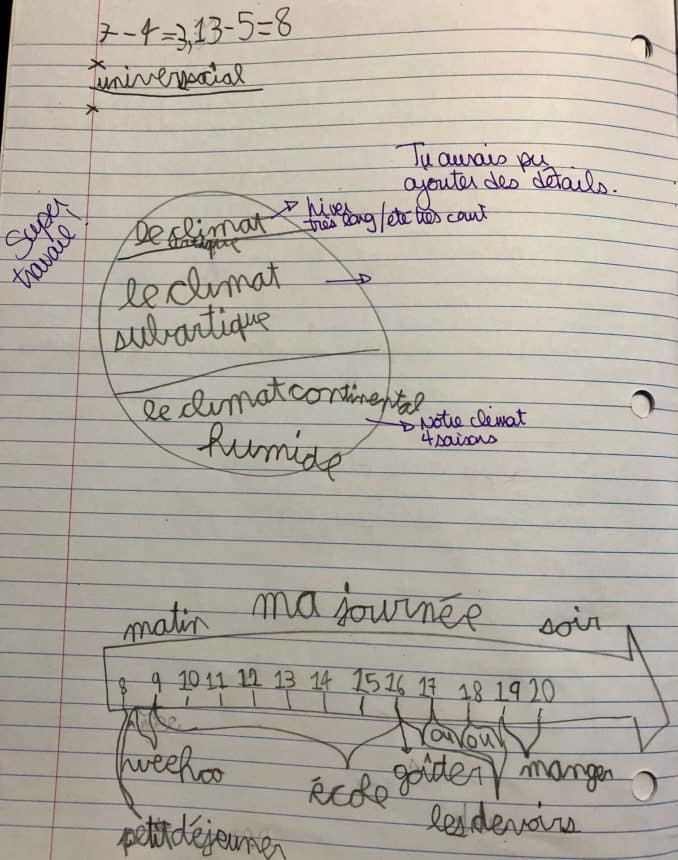 7-4=3,13-5=8
universocial
Tu aurais pu
ajouter des détails.
Super
travail!
De climat
artique
hiver
très long/été très court
le climat
subartique
le climat continental
humide
Notre climat
4 saisons
ma journée
matin
soir
8 9 10 11 12 13 14 15 16 17 18 19 20
weehoo
école
goûter
manger
les devoirs
petit déjeuner